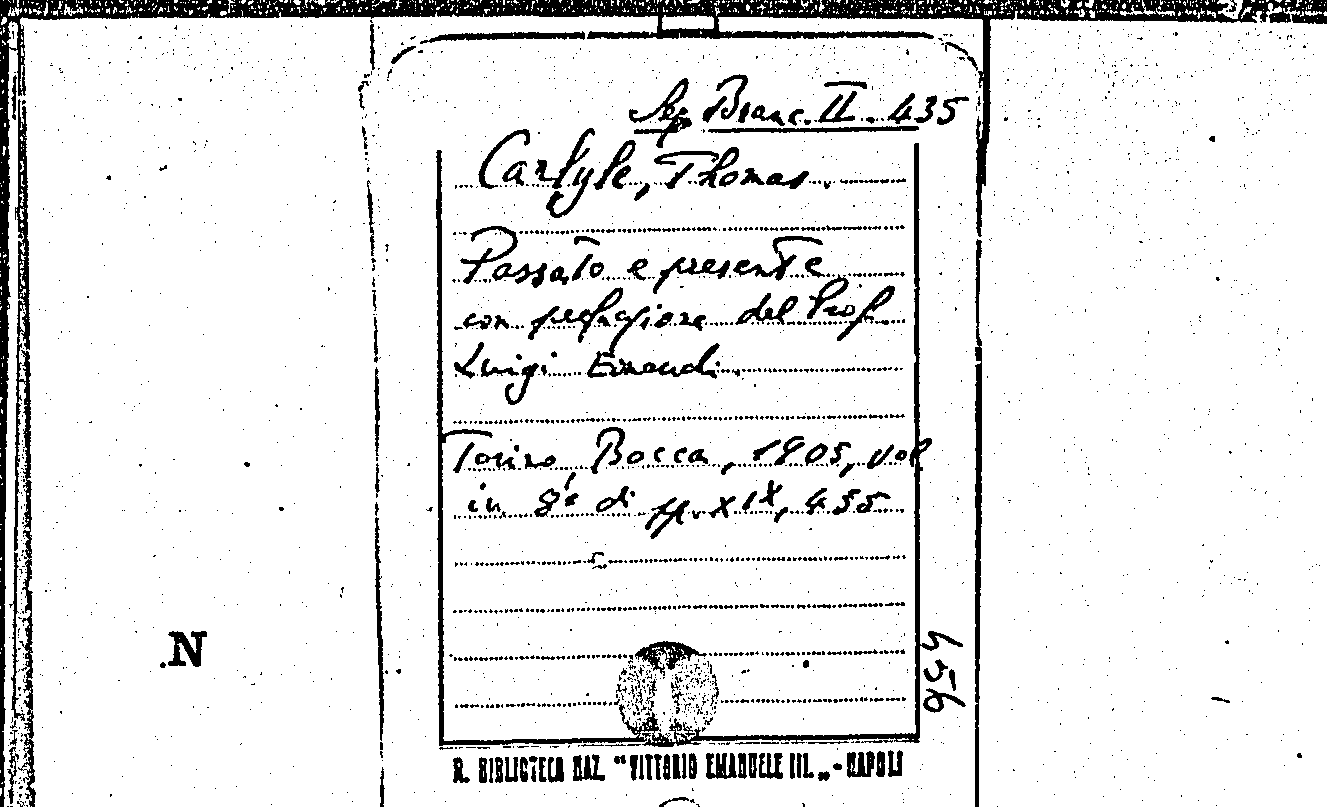 Sep. Branc. II. 435
Carlyle, Thomas.
Passato e presente
con prefazione del Prof.
Luigi Einaudi.
Torino, Bocca, 1905, vol.
in 8º di pp. XIX, 455
N
456
R. BIBLIOTECA NAZ. "VITTORIO EMANUELE III. „ - NAPOLI